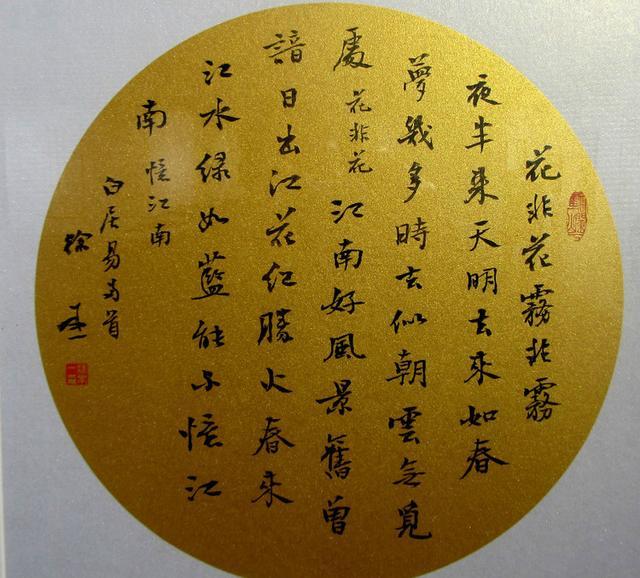 花非花霧非霧
夜半来天明去来如春
夢幾多時去似朝雲無覓
處花非花江南好風景舊曾
諳日出江花红勝火春来
江水绿如藍能不憶江
南憶江南
白居易两首
徐